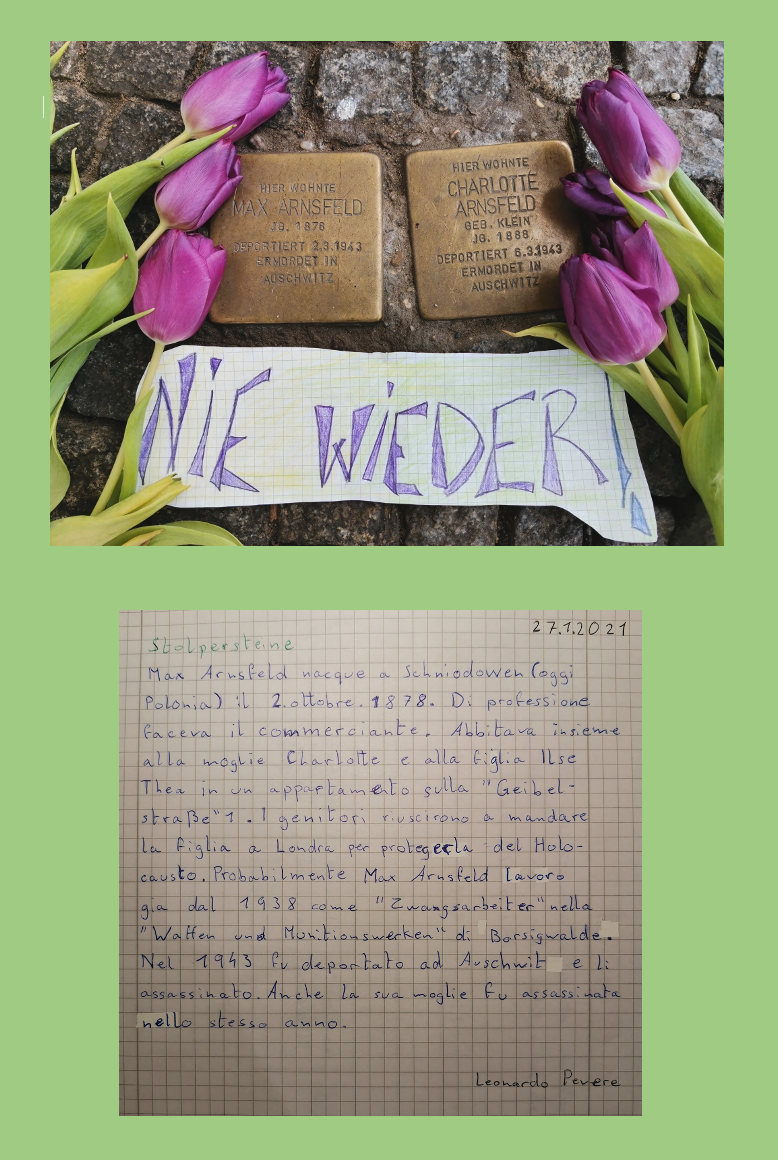 HIER WOHNTE
MAX ARNSFELD
JG. 1878
DEPORTIERT 2.3.1943
ERMORDET IN
AUSCHWITZ
HIER WOHNTE
CHARLOTTE
ARNSFELD
GEB. KLEIN
JG. 1888
DEPORTIERT 6.3.1943
ERMORDET IN
AUSCHWITZ
NIE WIEDER!
27.1.2021
Stolpersteine
Max Arnsfeld nacque a Schniodowen (oggi
Polonia) il 2.ottobre.1878. Di professione
faceva il commerciante. Abbitava insieme
alla moglie Charlotte e alla figlia Ilse
Thea in un appartamento sulla "Geibel-
straße"1. I genitori riuscirono a mandare
la figlia a Londra per protegerla del Holo-
causto. Probabilmente Max Arnsfeld lavoro
gia dal 1938 come "Zwangsarbeiter" nella
"Waffen und Munitionswerken" di Borsigwalde.
Nel 1943 fu deportato ad Auschwit e li
assassinato. Anche la sua moglie fu assassinata
nello stesso anno.
Leonardo Pevere